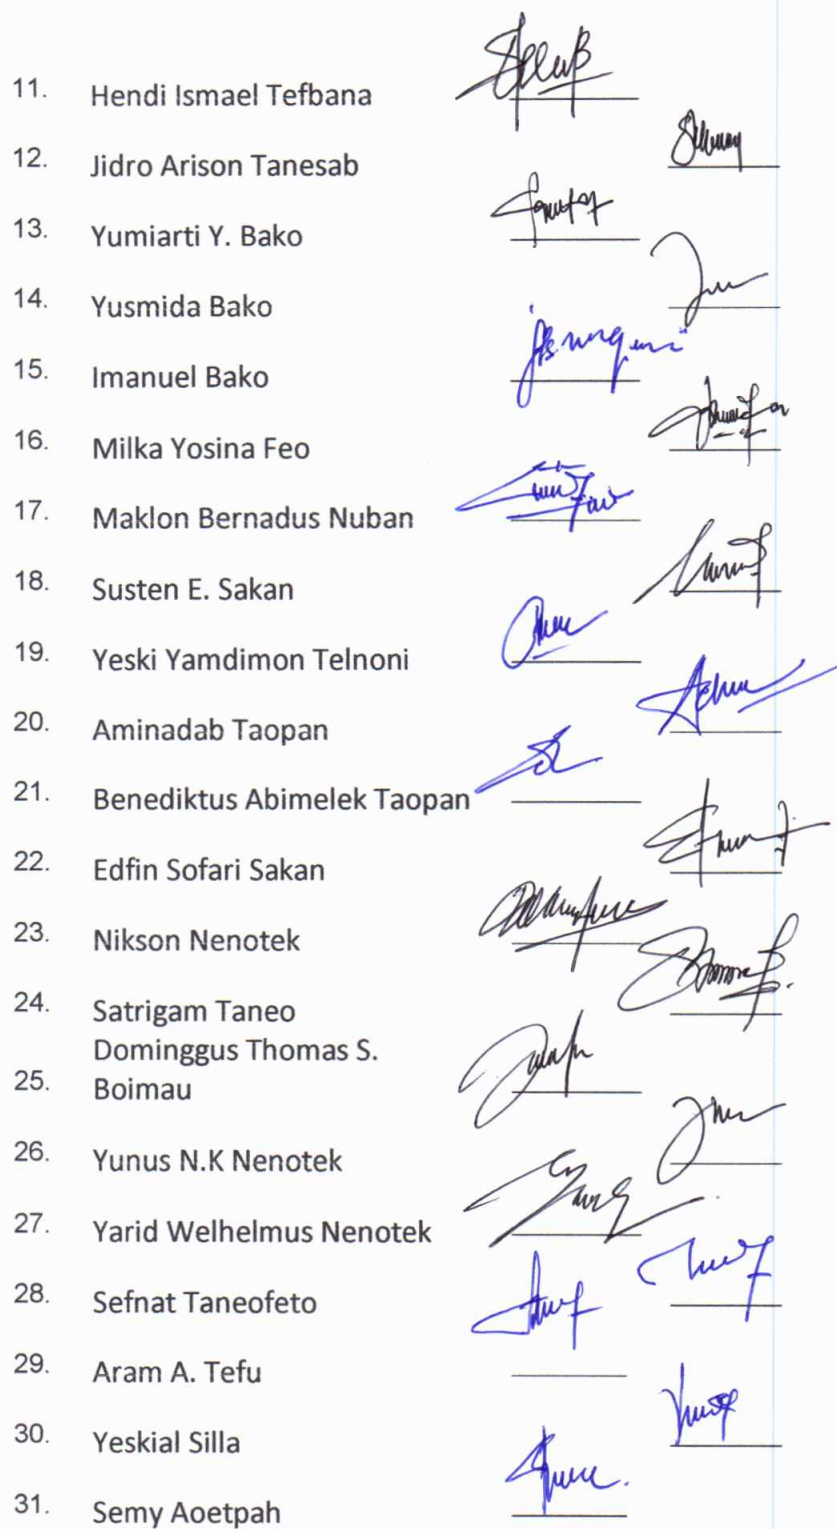 11. Hendi Ismael Tefbana
12. Jidro Arison Tanesab
13. Yumiarti Y. Bako
14. Yusmida Bako
15. Imanuel Bako
16. Milka Yosina Feo
17. Maklon Bernadus Nuban
18. Susten E. Sakan
19. Yeski Yamdimon Telnoni
20. Aminadab Taopan
21. Benediktus Abimelek Taopan
22. Edfin Sofari Sakan
23. Nikson Nenotek
24. Satrigam Taneo
Dominggus Thomas S.
25. Boimau
26. Yunus N.K Nenotek
27. Yarid Welhelmus Nenotek
28. Sefnat Taneofeto
29. Aram A. Tefu
30. Yeskial Silla
31. Semy Aoetpah